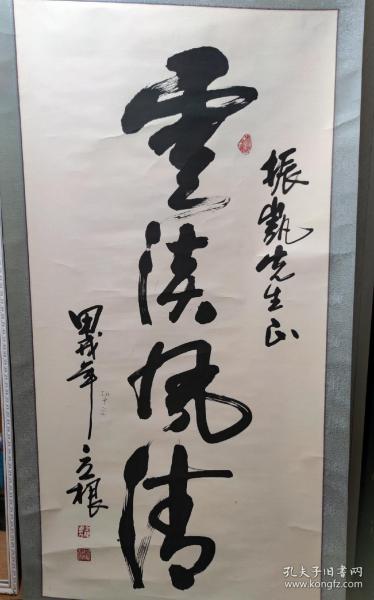 振凱先生正
雲淡風清
甲戌年 立根
孔夫子旧书网
www.kongfz.com